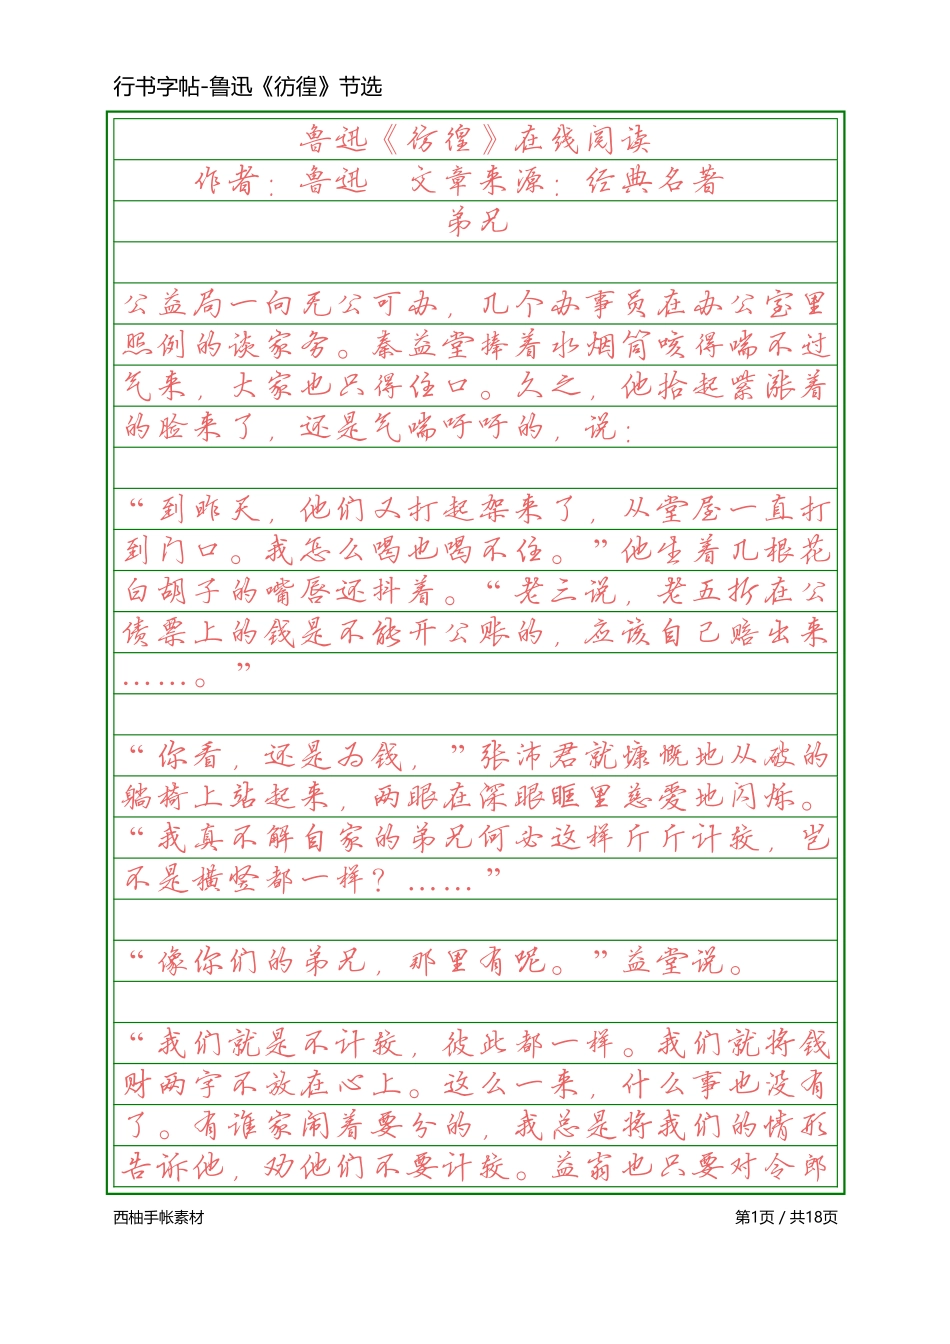 行书字帖-鲁迅《彷徨》节选
鲁迅《彷徨》在线阅读
作者：鲁迅　文章来源：经典名著
弟兄
公益局一向无公可办，几个办事员在办公室里
照例的谈家务。秦益堂捧着水烟筒咳得喘不过
气来，大家也只得住口。久之，他抬起紫涨着
的脸来了，还是气喘吁吁的，说：
“到昨天，他们又打起架来了，从堂屋一直打
到门口。我怎么喝也喝不住。”他生着几根花
白胡子的嘴唇还抖着。“老三说，老五折在公
债票上的钱是不能开公账的，应该自己赔出来
……。”
“你看，还是为钱，”张沛君就慷慨地从破的
躺椅上站起来，两眼在深眼眶里慈爱地闪烁。
“我真不解自家的弟兄何必这样斤斤计较，岂
不是横竖都一样？……”
“像你们的弟兄，那里有呢。”益堂说。
“我们就是不计较，彼此都一样。我们就将钱
财两字不放在心上。这么一来，什么事也没有
了。有谁家闹着要分的，我总是将我们的情形
告诉他，劝他们不要计较。益翁也只要对令郎
西柚手帐素材
第1页 / 共18页